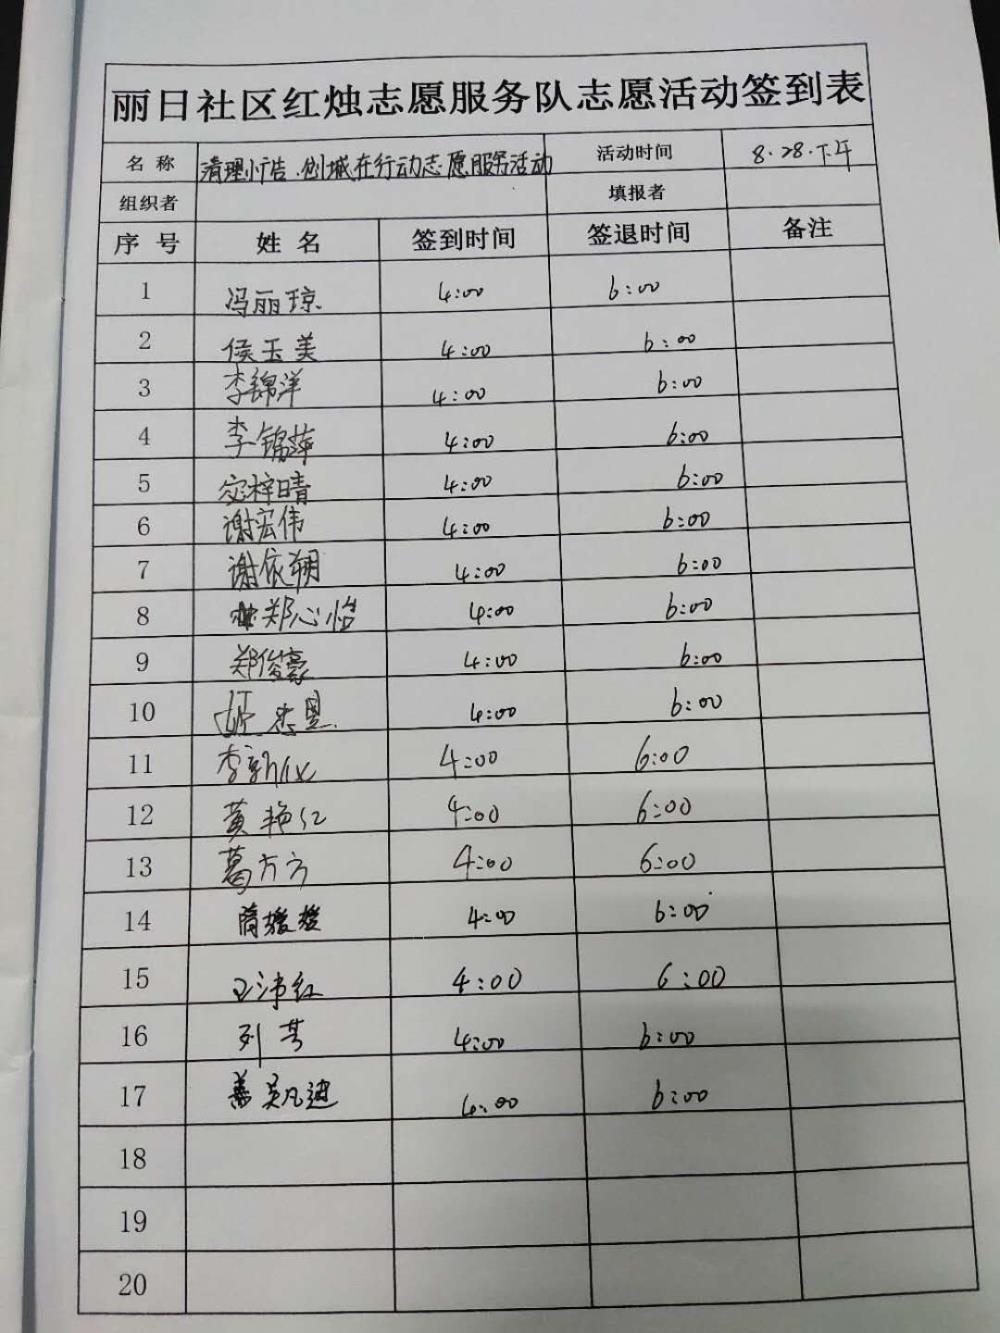 丽日社区红烛志愿服务队志愿活动签到表
名称 清理小广告.创城在行动志愿服务活动 活动时间 8.28.下午
组织者 填报者
序号 姓名 签到时间 签退时间 备注
1 冯丽琼 4:00 6:00
2 侯玉美 4:00 6:00
3 李锦洋 4:00 6:00
4 李锦萍 4:00 6:00
5 梓晴 4:00 6:00
6 谢宏伟 4:00 6:00
7 谢依朔 4:00 6:00
8 郑心怡 4:00 6:00
9 郑俊豪 4:00 6:00
10 4:00 6:00
11 李新 4:00 6:00
12 黄艳红 4:00 6:00
13 葛方方 4:00 6:00
14 4:00 6:00
15 王沛红 4:00 6:00
16 列芳 4:00 6:00
17 吴凡迪 4:00 6:00
18
19
20